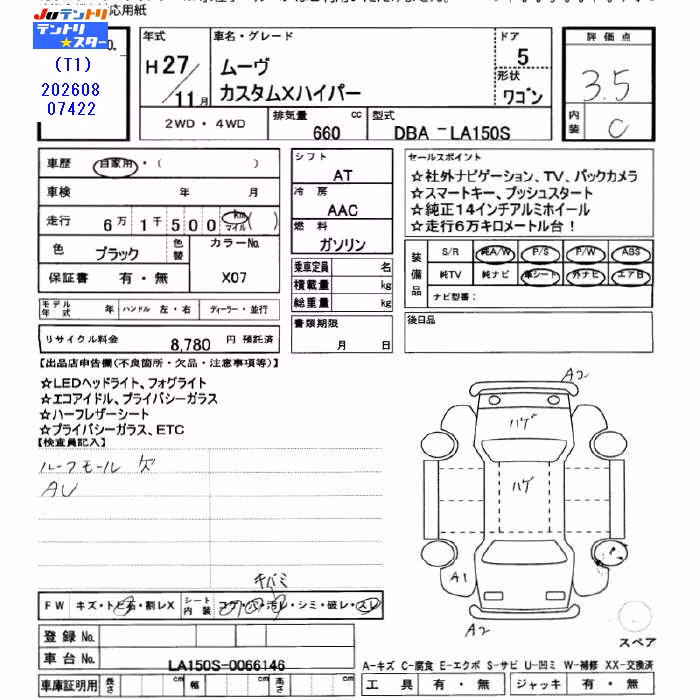 応用紙
JUテントリ
テントリ
★スター
(T1)
202608
07422
No.
年式
H27/11月
車名・グレード
ムーヴ
カスタムXハイパー
ドア
5
形状
ワゴン
評価点
3.5
内装
C
2WD・4WD
排気量
660 cc
型式
DBA-LA150S
車歴
自家用・( )
車検 年 月
走行 6万1千500 km マイル ( )
色 ブラック 色替
カラーNo.
X07
保証書 有・無
モデル年式 年 ハンドル 左・右 ディーラー・並行
リサイクル料金 8,780 円 預託済
シフト
AT
冷房
AAC
燃料
ガソリン
乗車定員 名
積載量 kg
総重量 kg
書類期限
月 日
セールスポイント
☆社外ナビゲーション、TV、バックカメラ
☆スマートキー、プッシュスタート
☆純正14インチアルミホイール
☆走行6万キロメートル台!
装備品
S/R 純A/W P/S P/W ABS
純TV 純ナビ 革シート 外ナビ エアB
ナビ型番:
後日品
【出品店申告欄(不良箇所・欠品・注意事項等)】
☆LEDヘッドライト、フォグライト
☆エコアイドル、プライバシーガラス
☆ハーフレザーシート
☆プライバシーガラス、ETC
【検査員記入】
ルーフモール 欠
AU
A2
ハゲ
ハゲ
A1
A2
スペア
キバミ
FW キズ・トビ石・割レX
シート内装 コゲ・穴・汚レ・シミ・破レ・スレ
登録No.
車台No.
LA150S-0066146
車庫証明用 長さ cm 幅 cm 高さ cm
A-キズ C-腐食 E-エクボ S-サビ U-凹ミ W-補修 XX-交換済
工具 有・無 ジャッキ 有・無